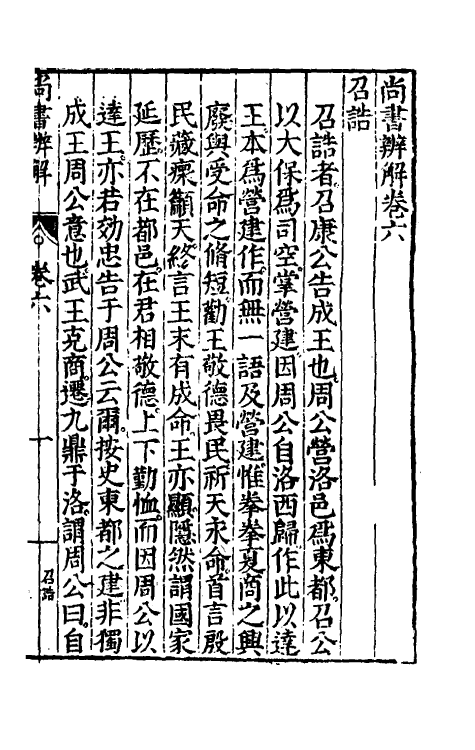 尚書辨解卷六
召誥
召誥者召康公告成王也周公營洛邑爲東都召公
以大保爲司空掌營建因周公自洛西歸作此以達
王本爲營建作而無一語及營建惟拳拳夏商之興
廢與受命之脩短勸王敬德畏民祈天永命首言殷
民藏瘝籲天終言王末有成命王亦顯隱然謂國家
延歷不在都邑在君相敬德上下勤恤而因周公以
達王亦若効忠告于周公云爾按史東都之建非獨
成王周公意也武王克商遷九鼎于洛謂周公曰自
尚書辨解
卷六
一
召誥